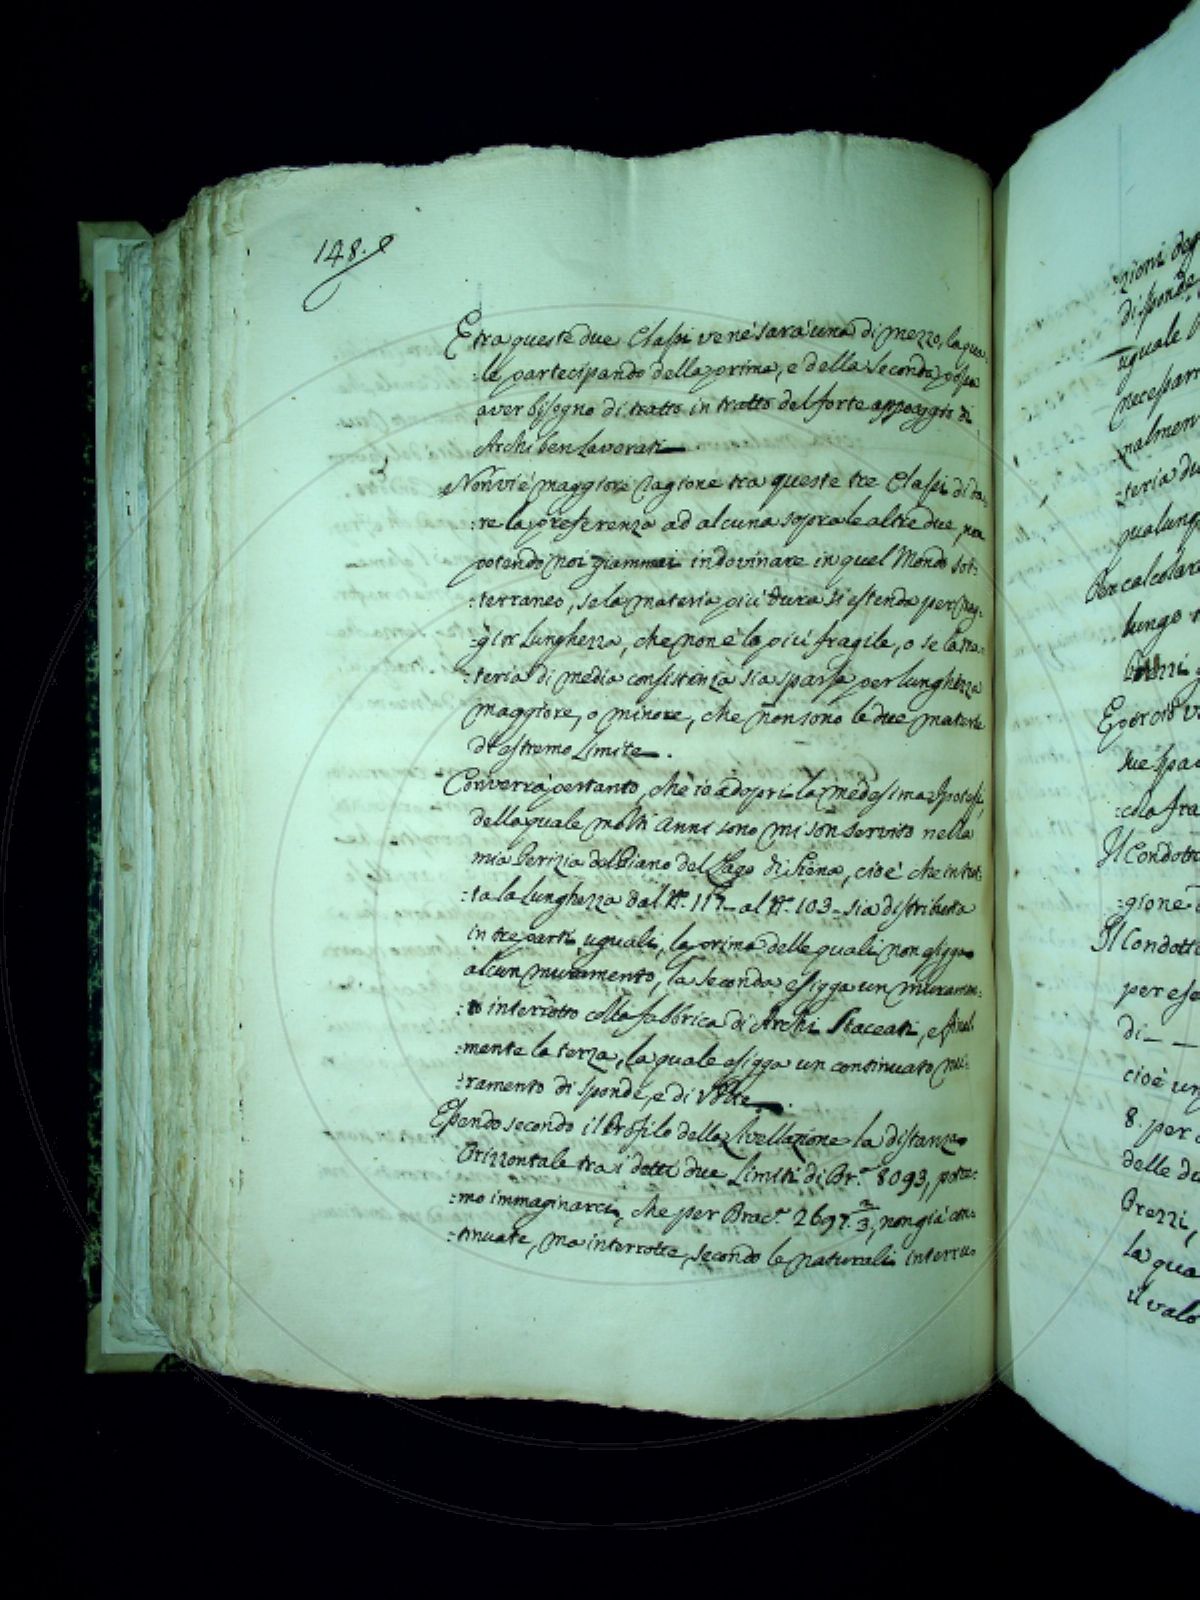 148.
E tra queste due Classi ve ne sarà una di mezzo, la qua-
:le partecipando della prima, e della seconda possa
aver bisogno di tratto in tratto del forte appoggio di
Archi ben lavorati.
Non vi è maggiore ragione tra queste tre Classi di da-
:re la preferenza ad alcuna sopra le altre due, non
potendo noi giammai indovinare in quel Mondo sot-
:terraneo, se la materia più dura si estenda per mag-
:gior lunghezza, che non è la più fragile, o se la ma-
:teria di media consistenza sia sparsa per lunghezza
maggiore, o minore, che non sono le due materie
di estremo Limite.
Converrà pertanto, che io adopri la medesima Ipotesi,
della quale molti anni sono mi son servito nella
mia Perizia del Piano del Lago di Siena, cioè che in tut-
:ta la lunghezza dal N.º 117 al N.º 103 sia distribuita
in tre parti uguali, la prima delle quali non esigga
alcun muramento, la seconda esigga un muramen-
:to interrotto colla fabbrica di Archi Staccati, e final-
:mente la terza, la quale esigga un continuato mu-
:ramento di sponde, e di Volte.
Essendo secondo il Profilo della Livellazione la distanza
Orizzontale tra i detti due Limiti di Br.ª 8093, potre-
:mo immaginarci, che per Brac.ª 2697.2/3, non già con-
:tinuate, ma interrotte, secondo le naturali interru-
:zioni deg
di sponde
uguale
necessar
nalmen
:teria du
qualunq
Per calcolare
lungo
Prezzi
E perciò v
sue spa
:cola fra
Il Condotto
:gione
Il Condotto
per ese
di
cioè un
8. per
delle du
Prezzi,
la qua
il valo